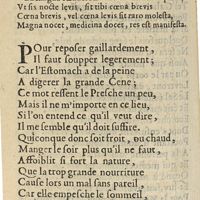 Ut sis nocte levis, sit tibi cœna brevis
Cœna brevis, vel cœna levis fit raro molesta,
Magna nocet, medicina docet, res est manifesta.
POur reposer gaillardement,
Il faut soupper legerement;
Car l'Estomach a de la peine
A digerer la grande Cene;
Ce mot ressent le Presche un peu,
Mais il ne m'importe en ce lieu,
Si l'on entend ce qu'il veut dire,
Il me semble qu'il doit suffire.
Quiconque donc soit froid, ou chaud,
Manger le soir plus qu'il ne faut,
Affoiblit si fort la nature,
Que la trop grande nourriture
Cause lors un mal sans pareil,
Car elle empesche le sommeil,